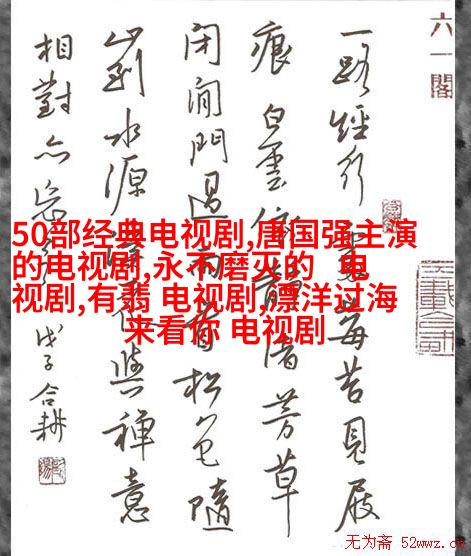 六一閣
一路經行處莓苔見屐
痕白雲依靜渚芳草
閉閒門過雨看松色隨
山到水源溪花與禪意
相對亦忘言 戊子合耕
50部经典电视剧,唐国强主演
的电视剧,永不磨灭的 电
视剧,有翡 电视剧,漂洋过海
来看你 电视剧
无为斋 52wwz.cn